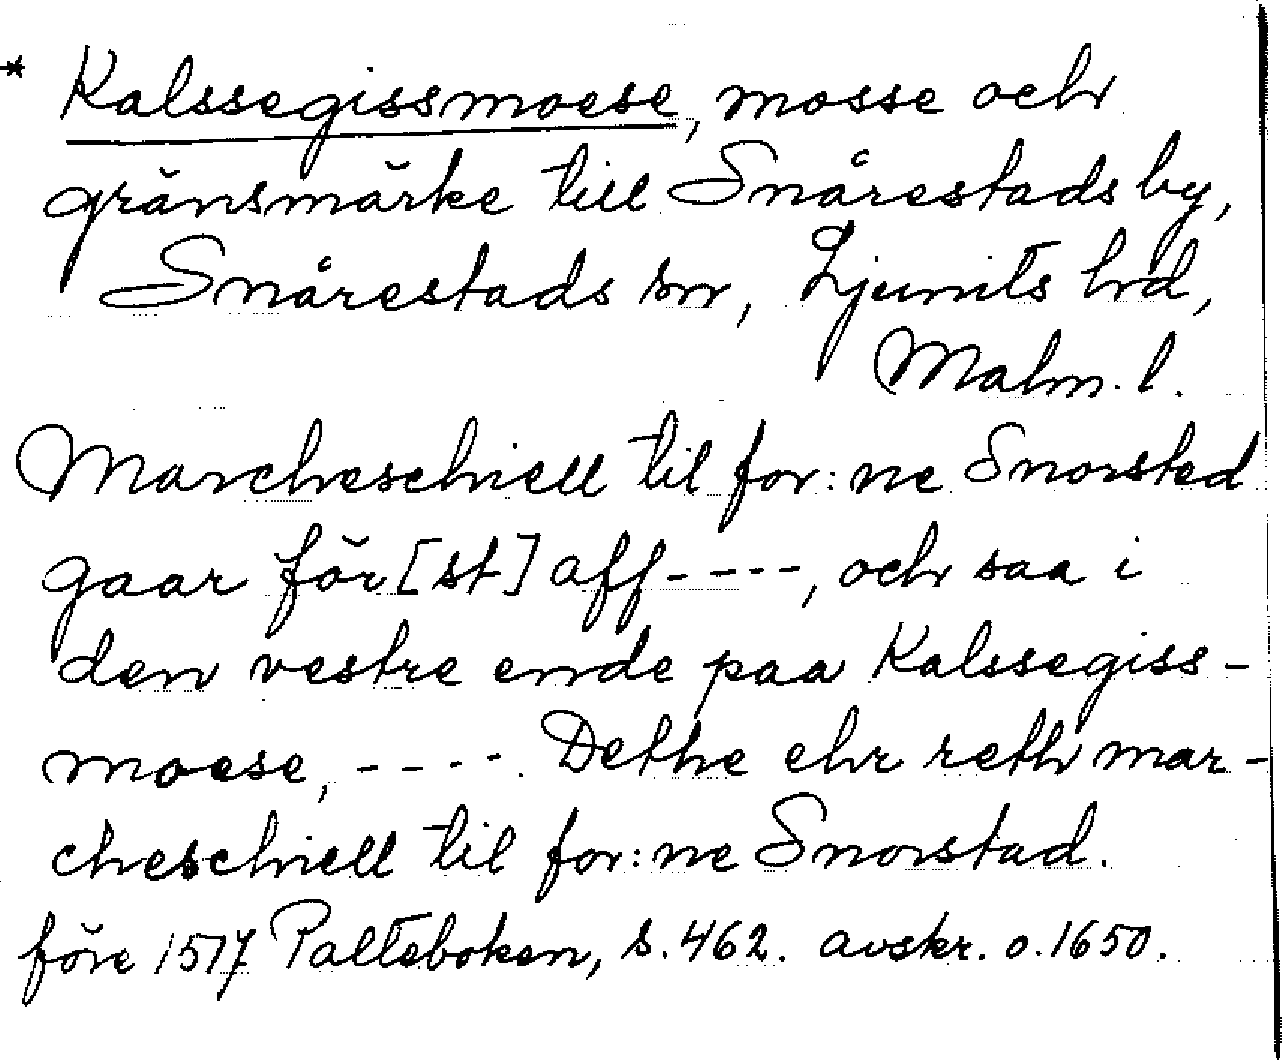 * Kalssegissmoese, mosse och
gränsmärke till Snårestads by,
Snårestads sn, Ljunits hd,
Malm. l.
Marcheschiell til for:ne Snorsted
gaar för[st] aff ----, och saa i
den vestre ende paa Kalssegiss-
moese, ----. Dethe ehr reth mar-
cheschiell til for:ne Snorstad.
före 1517 Palteboken, s. 462. avskr. o. 1650.